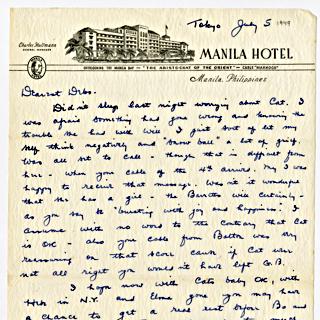 Tokyo July 5 1949
Charles Hallmann
MANILA HOTEL
OVERLOOKING THE MANILA BAY — "THE ARISTOCRAT OF THE ORIENT" — CABLE "MANHOCO"
Manila, Philippines
Dearest Dibs:
Didn't sleep last night worrying about Cat. I
was afraid something had gone wrong and knowing the
trouble she had with Will. I just sort of let my
self think negatively and "snow ball" a lot of grief.
Was all set to call - though that is difficult from
here - when your cable of the 4th arrived. My I was
happy to receive that message. Was it it wonderful
that she has a girl - the Barretts will certainly,
as you say be "bursting with joy and happiness". I
assume with no word to the contrary that Cat
is OK - also your cable from Bolton was my
reassuring on that score cause if Cat were
not all right you would it have left G.B.
I hope now with Cats baby OK, with
in N.Y. and gone you may have
a chance to get a real rest before Bo and